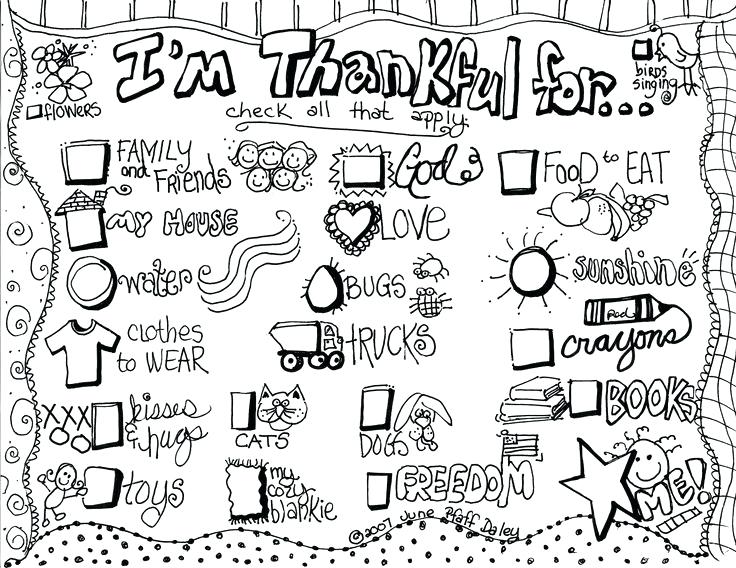 I'm Thankful for...
check all that apply:
flowers
birds
singing
FAMILY
and
Friends
God
FOOD to EAT
MY HOUSE
LOVE
water
BUGS
sunshine
clothes
to WEAR
TRUCKS
Red
crayons
XXX
OO
kisses
& hugs
CATS
DOGS
BOOKS
toys
my
cozy
blankie
FREEDOM
ME!
©2007 June Pfaff Daley